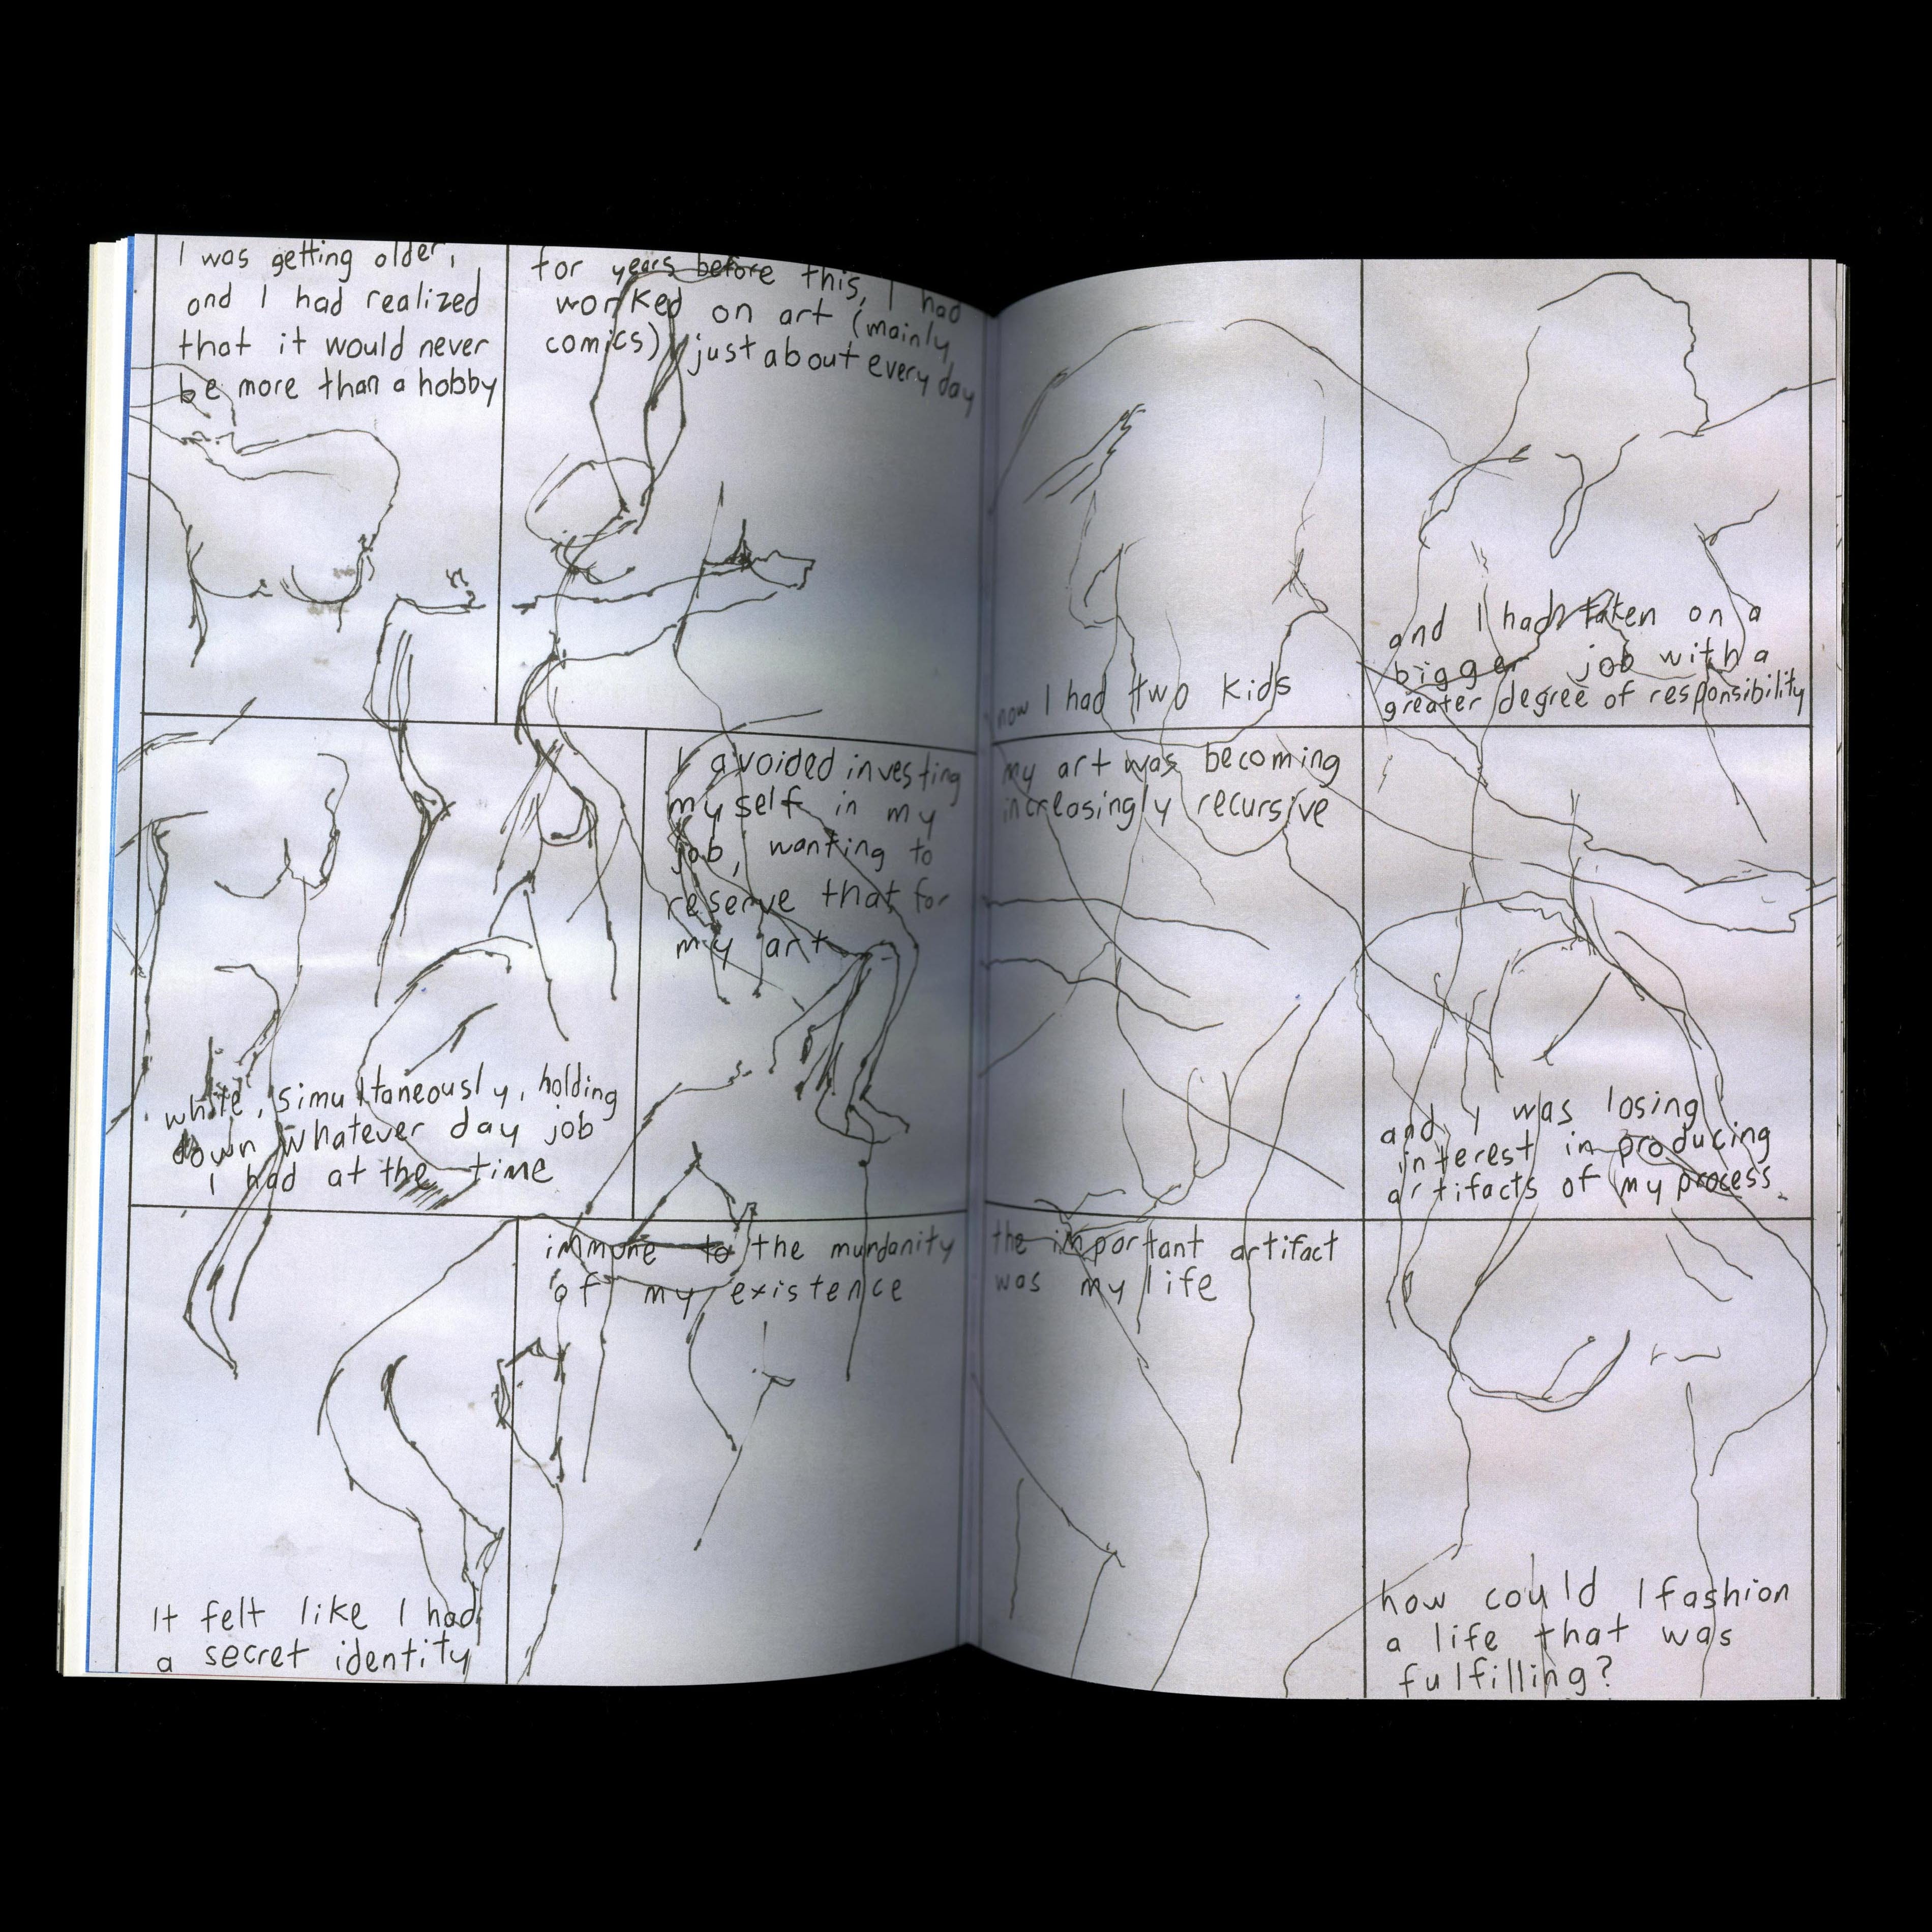 I was getting older,
and I had realized
that it would never
be more than a hobby
for years before this, I had
worked on art (mainly
comics) just about every day
while, simultaneously, holding
down whatever day job
I had at the time
I avoided investing
myself in my
job, wanting to
reserve that for
my art
It felt like I had
a secret identity
immune to the mundanity
of my existence
now I had two kids
and I had taken on a
bigger job with a
greater degree of responsibility
my art was becoming
increasingly recursive
and I was losing
interest in producing
artifacts of my process
the important artifact
was my life
how could I fashion
a life that was
fulfilling?